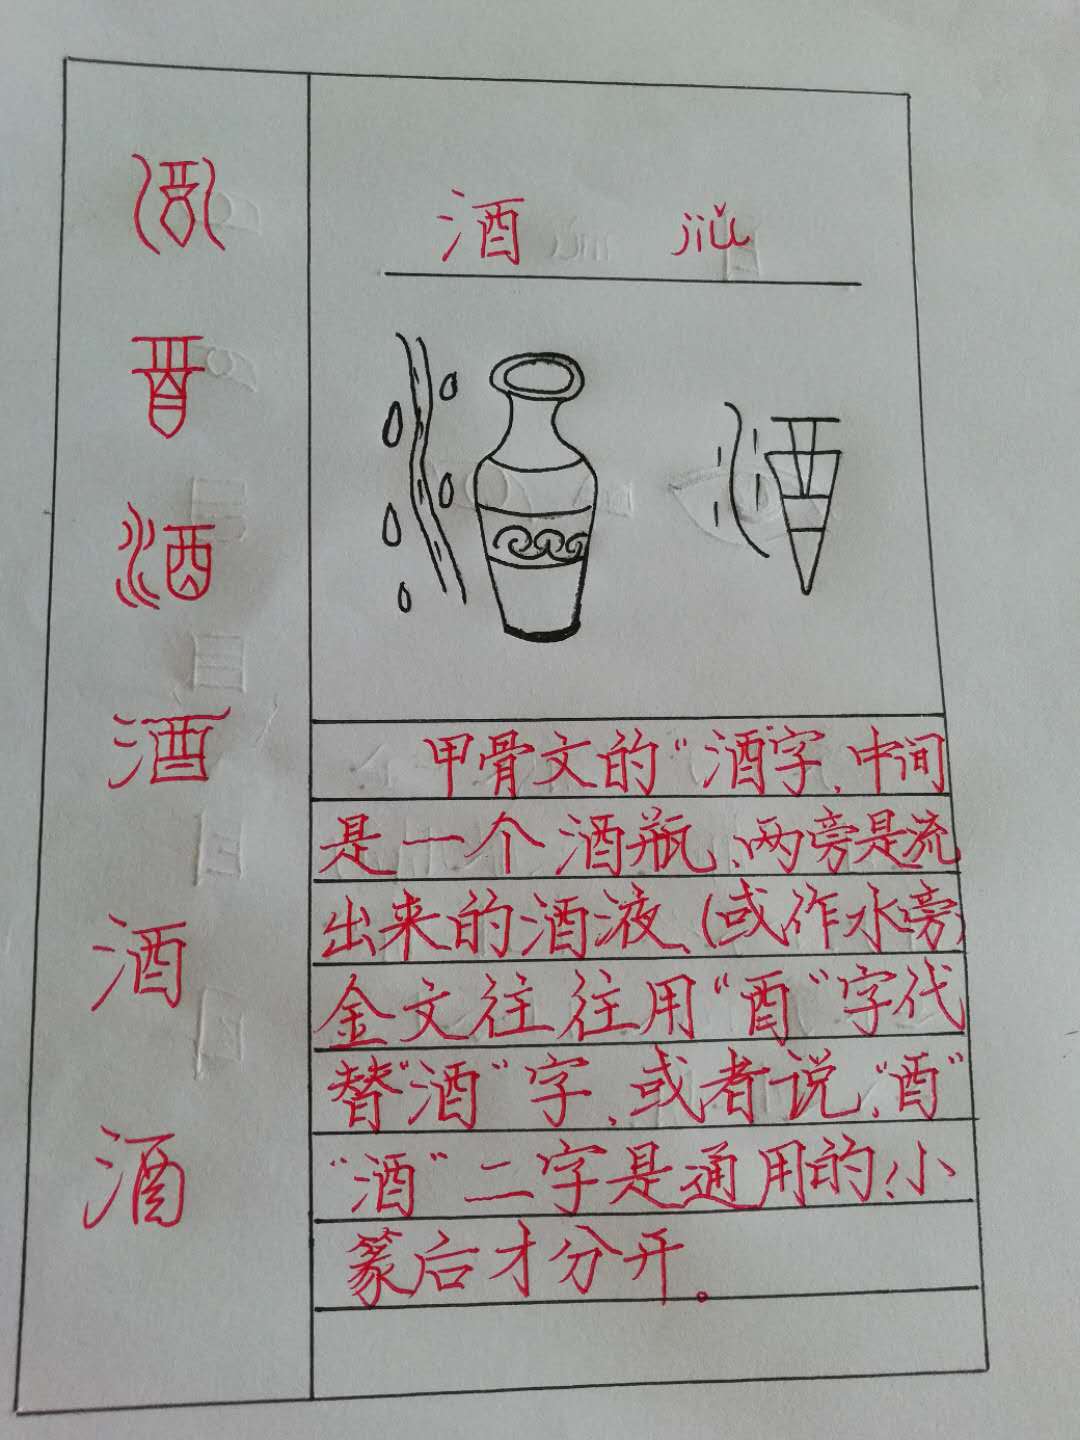 酒 jiǔ
酒
酒
酒
甲骨文的“酒”字、中间
是一个酒瓶、两旁是流
出来的酒液、(或作水旁)
金文往往用“酉”字代
替“酒”字、或者说、“酉”
“酒”二字是通用的、小
篆后才分开。